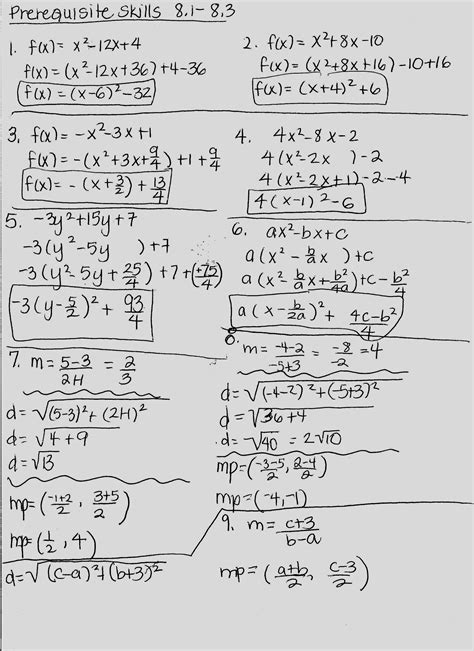 Prerequisite Skills 8.1-8.3
1. f(x) = x²-12x+4
f(x) = (x²-12x+36)+4-36
f(x) = (x-6)²-32
2. f(x) = x²+8x-10
f(x) = (x²+8x+16)-10+16
f(x) = (x+4)²+6
3. f(x) = -x²-3x+1
f(x) = -(x²+3x+9/4)+1+9/4
f(x) = -(x+3/2)+13/4
4. 4x²-8x-2
4(x²-2x )-2
4(x²-2x+1)-2-4
4(x-1)²-6
5. -3y²+15y+7
-3(y²-5y )+7
-3(y²-5y+25/4)+7+(+75/4)
-3(y-5/2)²+93/4
6. ax²-bx+c
a(x²-b/a x )+c
a(x²-b/a x+b²/4a)+c-b²/4
a(x-b/2a)²+ 4c-b²/4
7. m=5-3/2+1=2/3
d=√(5-3)²+(2+1)²
d=√4+9
d=√13
mp=(-1+2/2, 3+5/2)
mp=(1/2, 4)
8. m=-4-2/-5+3=-8/-2=4
d=√(-4-2)²+(-5+3)²
d=√36+4
d=√40=2√10
mp=(-3-5/2, 2-4/2)
mp=(-4,-1)
9. m=c+3/b-a
d=√(c-a)²+(b+3)²
mp=(a+b/2, c-3/2)